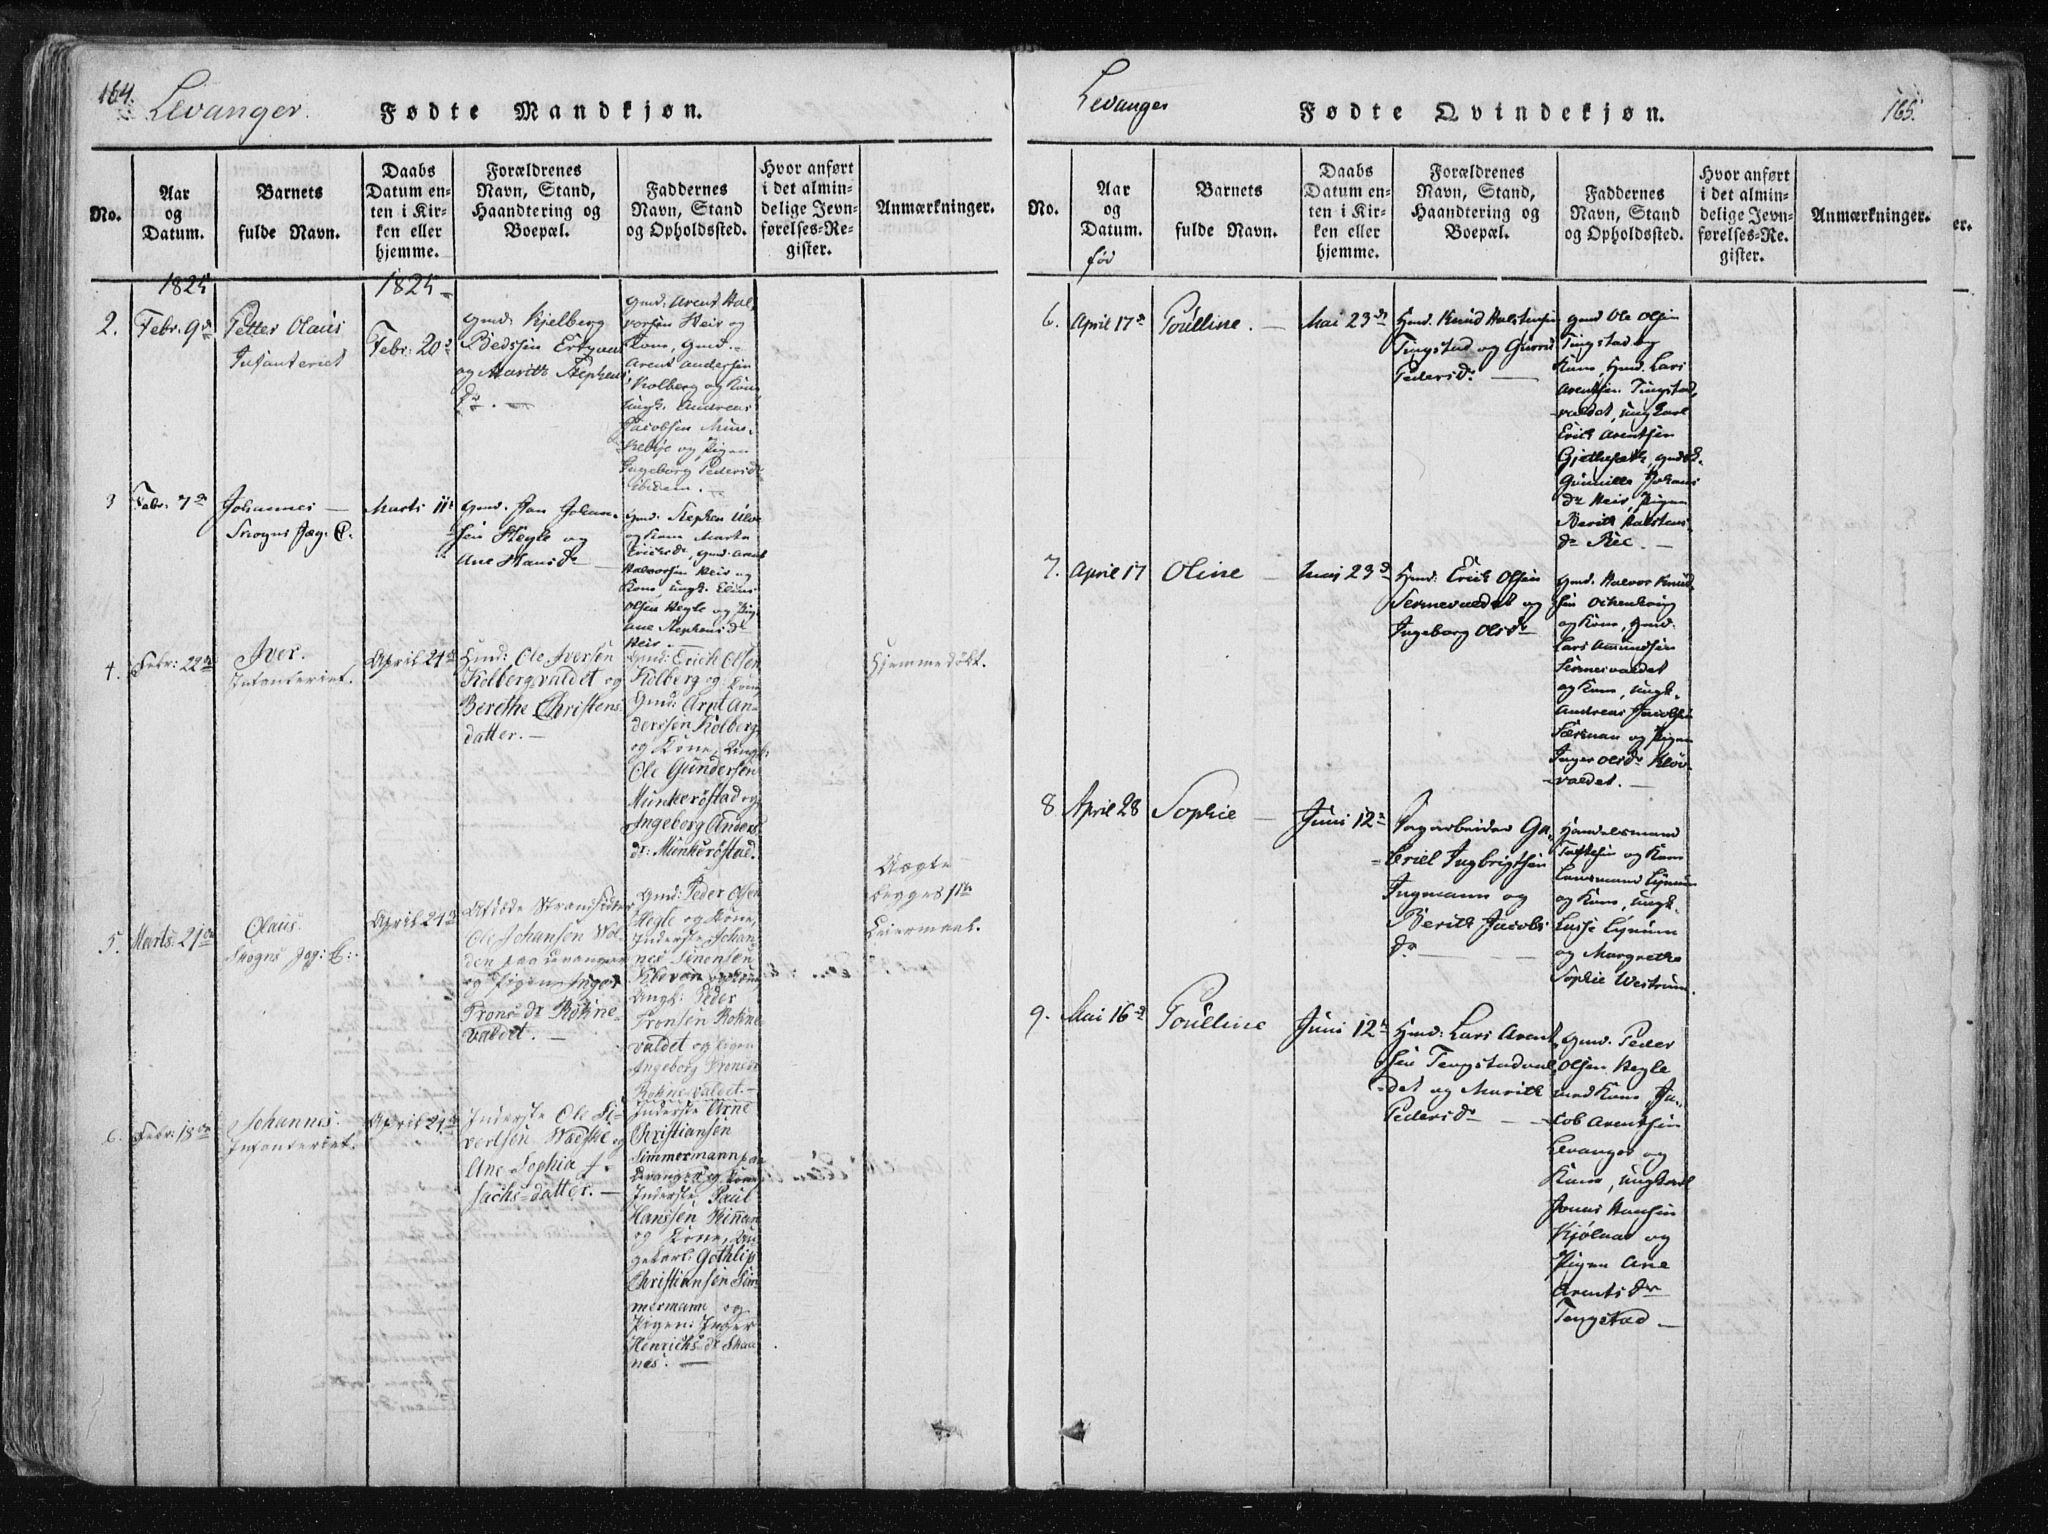 164.
Levanger.
Fødte Mandkjøn.
No.
Aar
og
Datum.
Barnets
fulde Navn.
Daabs
Datum en-
ten i Kir-
ken eller
hjemme.
Forældrenes
Navn, Stand,
Haandtering og
Boepæl.
Faddernes
Navn, Stand
og Opholdssted.
Hvor anført
i det almin-
delige Jevn-
førelses-Re-
gister.
Anmærkninger.
1825
1825
2.
Febr. 9de
Petter Olaus
Infanteriet
Febr. 20de
Gmd: Kjelberg
og Marith Stephens
dr. —
Gmd: Arent Hal-
vorsen Heir og
Kone, Gmd.
Arent Andersen
Kolberg og Kone
Ungk. Andreas
Jacobsen Mun-
og Pigen
Ingeborg Pedersdr
ibidem. —
3
Febr. 7de
Johannes —
Skogns Jæg. C.
Marts 11
Gmd. Jan Johan-
sen Hegle og
Ane Hansdr —
Gmd. Stephen
og Kone Marta
Ericksdr, Gmd. Arent
Halvorsen Heir og
Kone, Ungk. Elias
Olsen Hegle og Pig
Ane Stephensdr
Heir. —
4.
Febr: 22de
Iver.
Infanteriet.
April 24de
Huusmd: Ole Iversen
Kolbergsvaldet og
Berethe Christens-
datter. —
Gmd: Erich Olsen
Kolberg og Kone,
Gmd: Arnt An-
derssen Kolberg
og Kone, Ungk:
Ole Gundersen
Munkerøstad og
Ingeborg Anders
dr: Munkerøstad.
Hjemmedøbt.
5.
Marts: 21de
Olaus.
Skogns Jag: C:
April 24de
Afdøde Strandsidder
Ole Johansen Wol-
den paa Levanger
og Pigen Inger
Trons-dr Rokne-
valdet. —
Gmd: Peder Olsen
Hegle og Kone,
Inderste Johan-
nes Simonsen
Kleven og Kone
Ungk: Peder
Tronsen Rokne-
valdet og Pigen
Ingeborg Tronsdr
Roknevaldet. —
Uægte
begges 1ste
Leiermaal.
6.
Febr: 18de
Johannes.
Infanteriet.
April 24de
Inderste Ole Si-
vertsen Wadske og
Ane Sophia I-
sachs-datter. —
Inderste Arne
Christiansen
Simmermann paa
Levanger og Kone,
Inderste Paul
Hanssen Hinnan
og Kone, Un-
gekarl: Gothlip
Christiansen Sim-
mermann og
Pigen: Inger
Henrichs-dr Skaa-
nes. —
165.
Levanger
Fødte Qvindekjøn.
No.
Aar
og
Datum.
fød
Barnets
fulde Navn.
Daabs
Datum en-
ten i Kir-
ken eller
hjemme.
Forældrenes
Navn, Stand,
Haandtering og
Boepæl.
Faddernes
Navn, Stand
og Opholdssted.
Hvor anført
i det almin-
delige Jevn-
førelses-Re-
gister.
Anmærkninger.
6.
April 17de
Poulline. —
Mai 23de
Hmd. Knud Halstensen
Tingstad og Gurru
Pedersdr —
Gmd Ole Olsen
Tingstad og
Kone, Hmd. Lars
Arentsen Tingstad
valdet, Ungkarl
Erick Arentsen
Gunnille Johans
dr Heir, Pigen
Berith Halstens
dr Ree. —
7.
April 17
Oline —
Maj 23de
Hmd: Erick Olsen
Sermevaldet og
Ingeborg Olsdr
Gmd. Halvor Knud
sen
og Kone, Gmd.
Lars Amundsen
Sermesvaldet
og Kone, Ungk.
Andreas Jacobsen
Færsnan og Pigen
Inger Olsdr Kløv-
valdet. —
8
April 28
Sophie —
Juni 12te
Dagarbeider Ga-
briel Ingbrigtsen
Ingmann og
Berith Jacobs
dr —
Handelsmand
Toftesen og Kone
Lensmand Lynum
og Kone, Ungk.
Lusse Lynum
og Margrethe
Sophie Westrum.
9.
Mai 16de
Poulline
Juni 12te
Hmd: Lars Arent
sen Tengstadval-
det og Marith
Pedersdr —
Gmd. Peder
Olsen Hegle
med Kone, Ja-
cob Arentsen
Levanger og
Kone, Ungkarl
Jonas Hansen
Kjølnas og
Pigen Ane
Arentsdr
Tengstad —